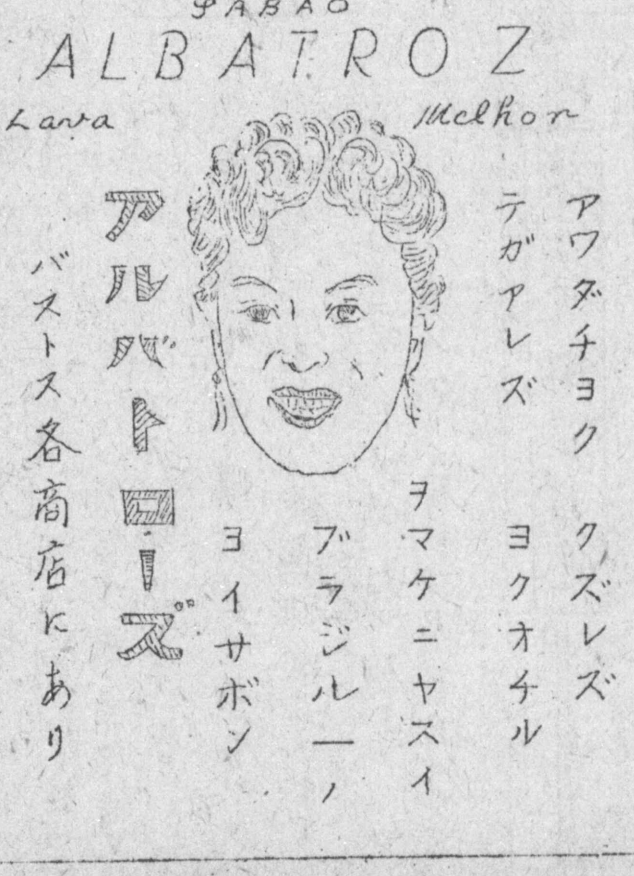 SABÃO
ALBATROZ
Lava Melhor
アワダチヨク クズレズ
テガアレズ ヨクオチル
ヲマケニヤスイ
ブラジル一ノ
ヨイサボン
アルバトローズ
バストス各商店にあり